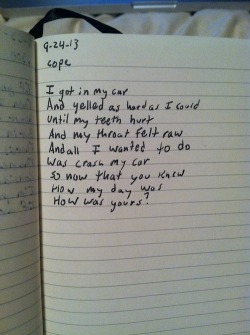 9-24-13
cope
I got in my car
And yelled as hard as I could
Until my teeth hurt
And my throat felt raw
And all I wanted to do
Was crash my car
So now that you know
How my day was
How was yours?